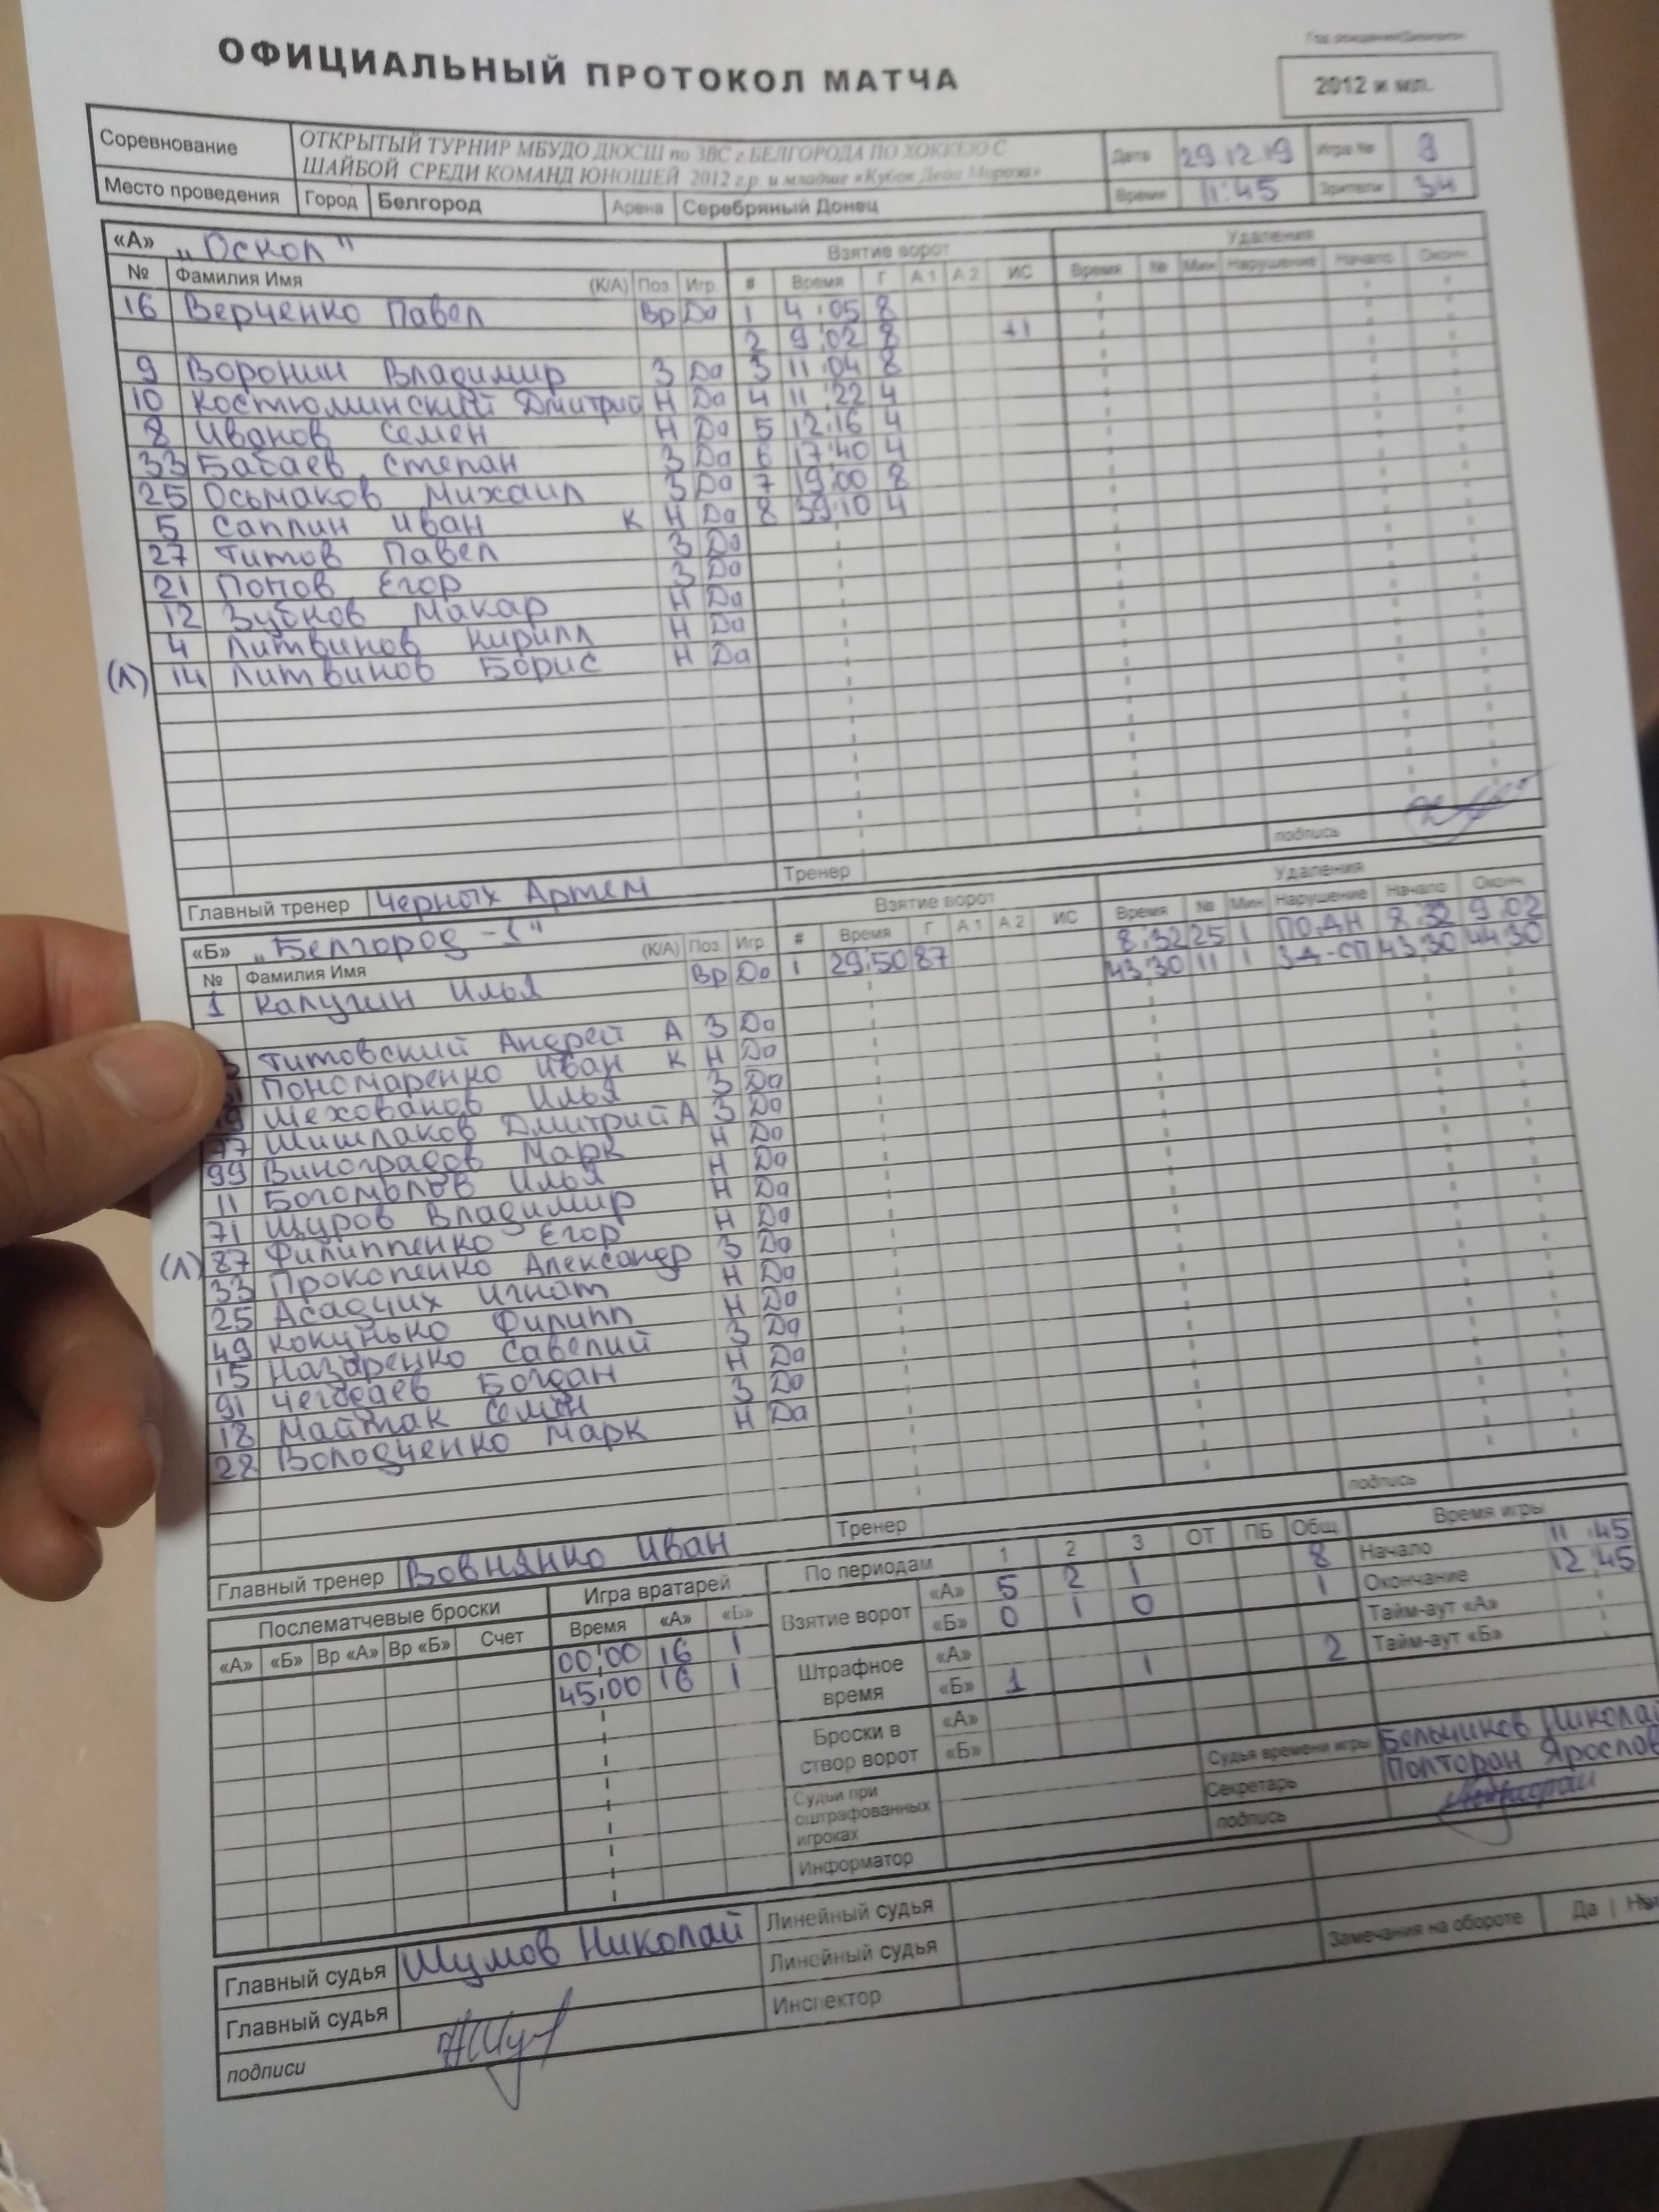 Год рождения/Дивизион
ОФИЦИАЛЬНЫЙ ПРОТОКОЛ МАТЧА
2012 и мл.
Соревнование ОТКРЫТЫЙ ТУРНИР МБУДО ДЮСШ по ЗВС г.БЕЛГОРОДА ПО ХОККЕЮ С Дата 29.12.19 Игра № 9
ШАЙБОЙ СРЕДИ КОМАНД ЮНОШЕЙ 2012 г.р. и младше «Кубок Деда Мороза»
Место проведения Город Белгород Арена Серебряный Донец Время 11:45 Зрители 34
«А» „Оскол" Взятие ворот Удаления
№ Фамилия Имя (К/А) Поз Игр. # Время Г А1 А2 ИС Время № Мин Нарушение Начало Оконч.
16 Верченко Павел Вр Да 1 4:05 8
2 9:02 8 +1
9 Воронин Владимир З Да 3 11:04 8
10 Костюминский Дмитрий Н Да 4 11:22 4
8 Иванов Семен Н Да 5 12:16 4
33 Бабаев Степан З Да 6 17:40 4
25 Осьмаков Михаил З Да 7 19:00 8
5 Саплин Иван К Н Да 8 39:10 4
27 Титов Павел З Да
21 Попов Егор З Да
12 Зубков Макар Н Да
4 Литвинов Кирилл Н Да
(Л) 14 Литвинов Борис Н Да
Главный тренер Черных Артем Тренер подпись
«Б» „Белгород-1" Взятие ворот Удаления
№ Фамилия Имя (К/А) Поз. Игр # Время Г А1 А2 ИС Время № Мин Нарушение Начало Оконч.
1 Калугин Илья Вр Да 1 29:50 87 8:32 25 1 ПОДН 8:32 9:02
43:30 11 1 ЗД-СП 43:30 44:30
Титовский Андрей А З Да
Пономаренко Иван К Н Да
Шехованов Илья З Да
77 Шишлаков Дмитрий А З Да
99 Виноградов Марк Н Да
11 Богомолов Илья Н Да
71 Щуров Владимир Н Да
(Л) 87 Филиппенко Егор Н Да
33 Прокопенко Александр З Да
25 Асадчих Игнат Н Да
49 Кокунько Филипп Н Да
15 Назаренко Савелий З Да
91 Чегодаев Богдан Н Да
18 Майтак Семён З Да
22 Володченко Марк Н Да
Главный тренер Вовнянко Иван Тренер подпись
Послематчевые броски Игра вратарей По периодам 1 2 3 ОТ ПБ Общ Время игры
«А» «Б» Вр «А» Вр «Б» Счет Время «А» «Б» Взятие ворот «А» 5 2 1 8 Начало 11:45
00:00 16 1 «Б» 0 1 0 1 Окончание 12:45
45:00 16 1 Штрафное время «А» Тайм-аут «А»
«Б» 1 1 2 Тайм-аут «Б»
Броски в створ ворот «А»
«Б» Судья времени игры Бельчиков Николай
Судьи при оштрафованных игроках Секретарь Полторан Ярослав
Информатор подпись
Главный судья Шумов Николай Линейный судья
Главный судья Линейный судья Замечания на обороте Да |
подписи Инспектор